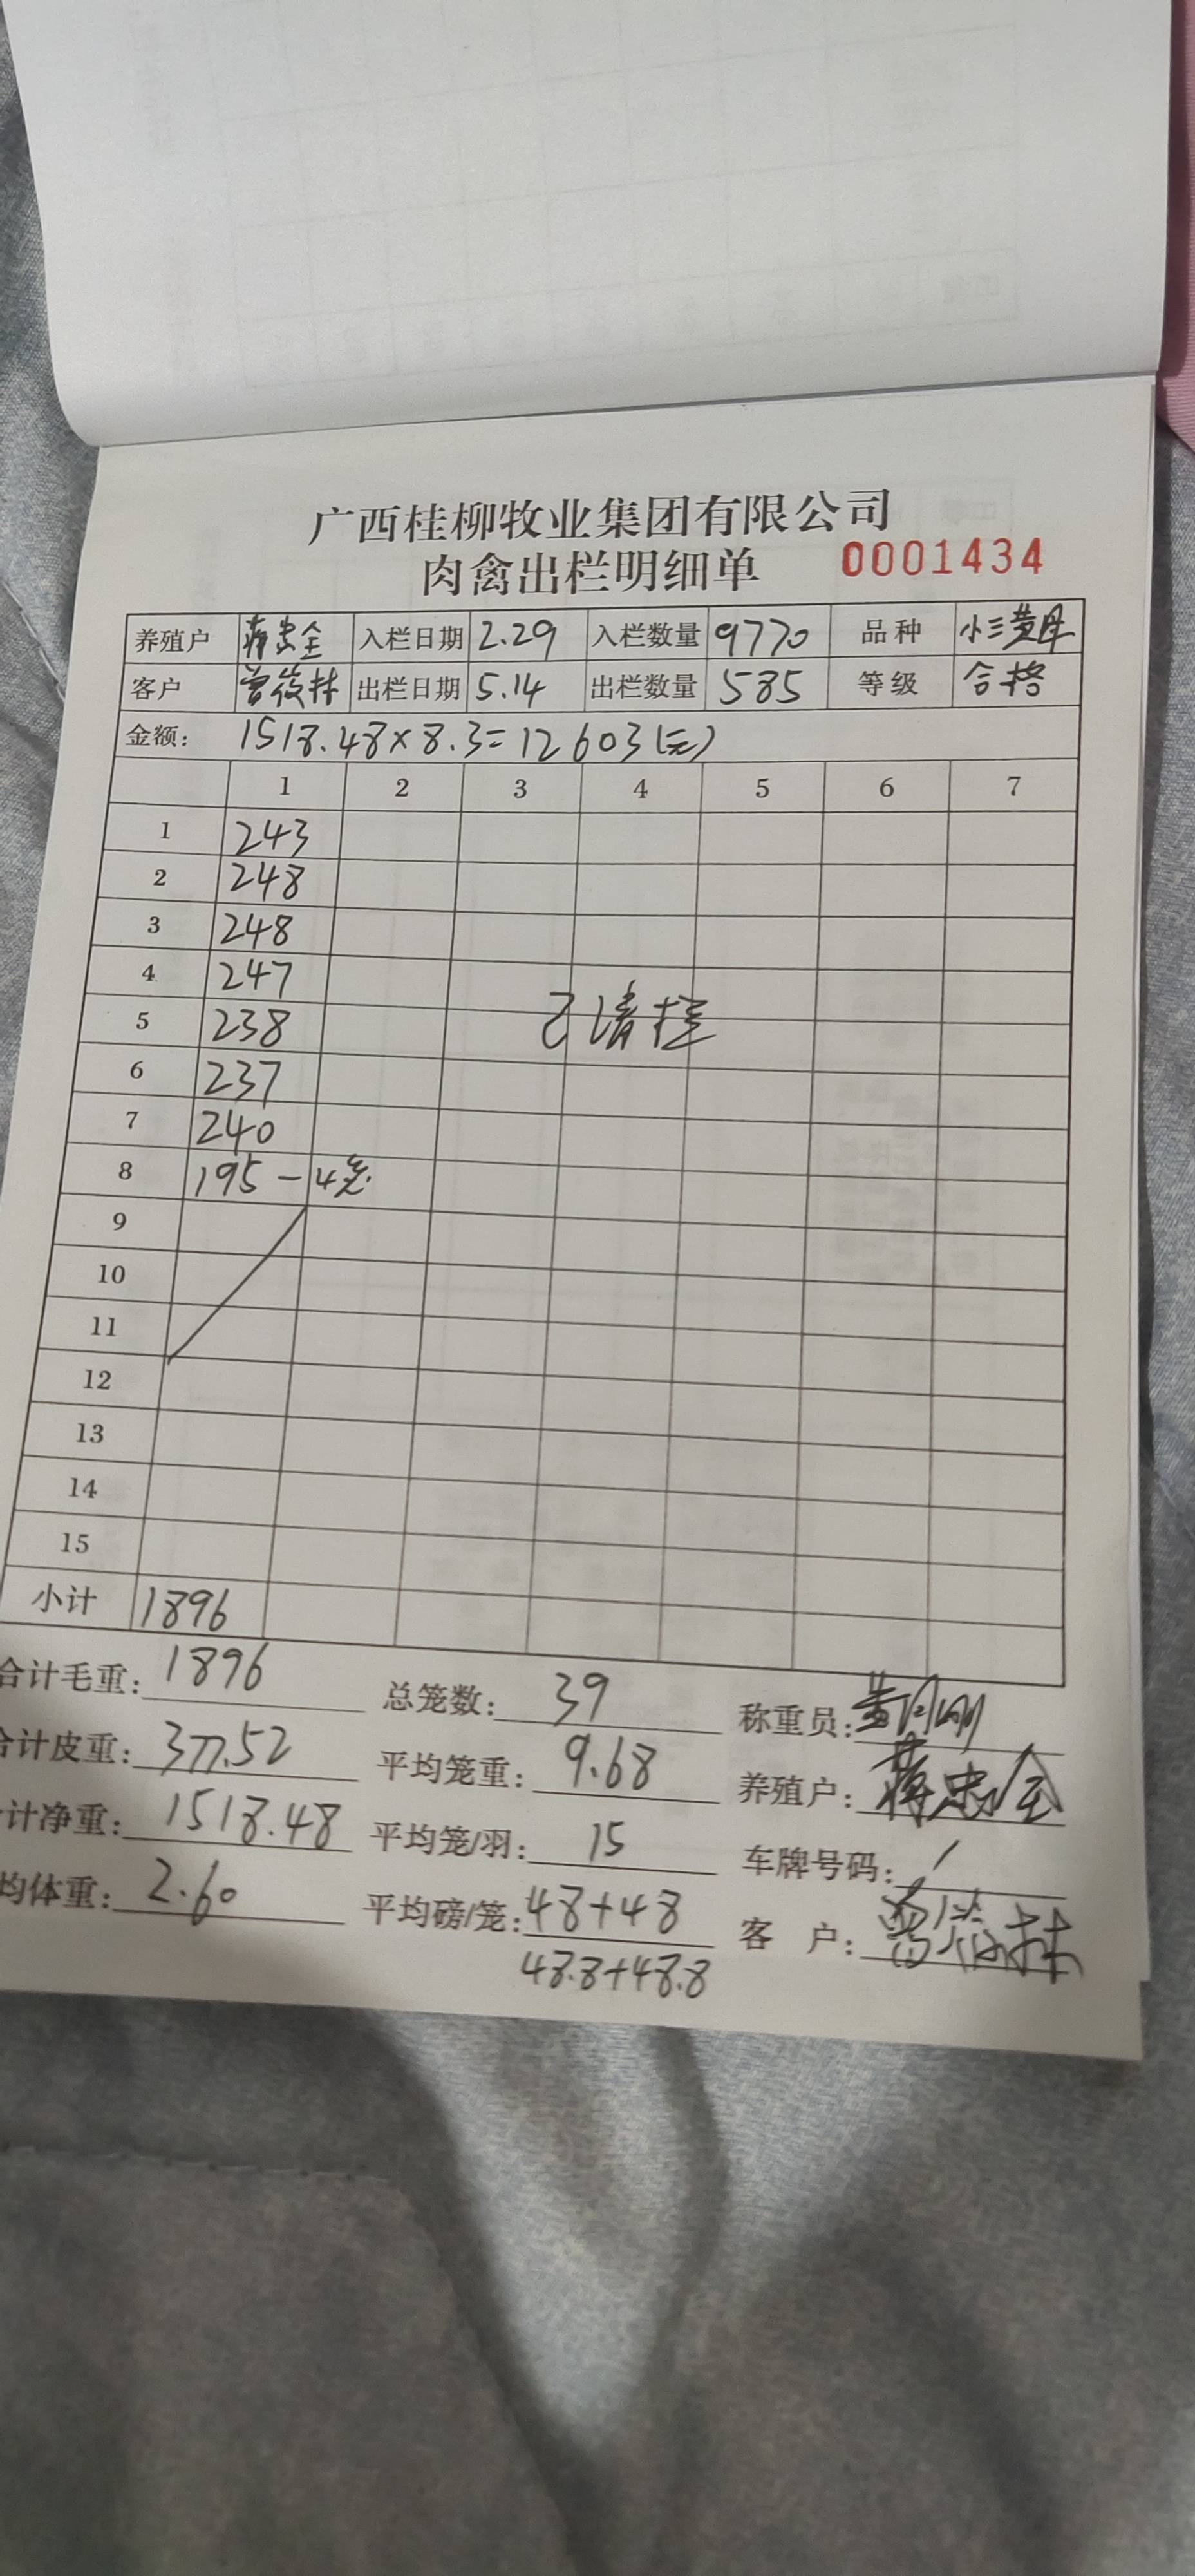 广西桂柳牧业集团有限公司
肉禽出栏明细单 0001434
养殖户 蒋忠全 入栏日期 2.29 入栏数量 9770 品种 小三黄母
客户 曾筱林 出栏日期 5.14 出栏数量 585 等级 合格
金额: 1518.48×8.3=12603(元)
1 2 3 4 5 6 7
1 243
2 248
3 248
4 247
5 238
6 237
7 240
8 195-4笼
9
10
11
12
13
14
15
已清栏
小计 1896
合计毛重: 1896 总笼数: 39 称重员:
合计皮重: 377.52 平均笼重: 9.68 养殖户: 蒋忠全
计净重: 1518.48 平均笼/羽: 15 车牌号码: /
均体重: 2.60 平均磅/笼: 48+48 客户:
48.8+48.8